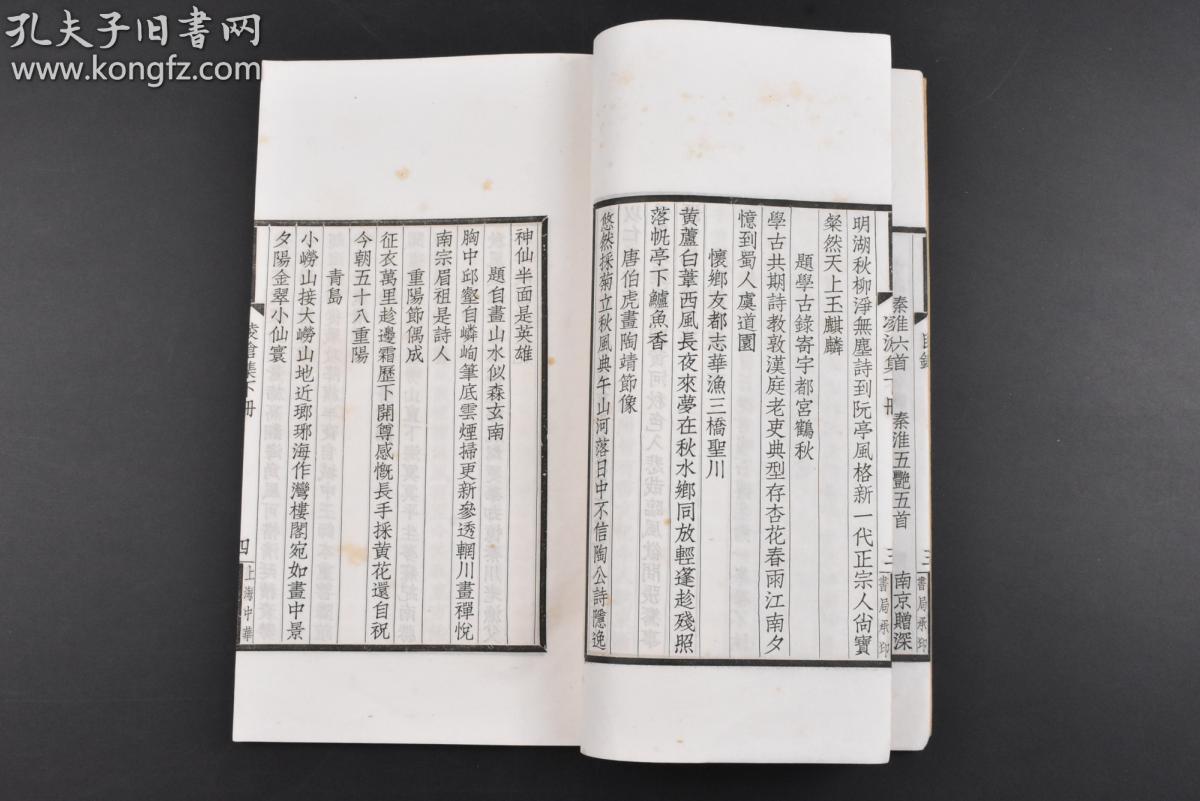 孔夫子旧书网
www.kongfz.com
目錄
秦淮六首 秦淮五艷五首 南京贈深
三
書局承印
集下冊
三
書局承印
明湖秋柳淨無塵詩到阮亭風格新一代正宗人尙寶
粲然天上玉麒麟
題學古錄寄宇都宮鶴秋
學古共期詩教敦漢庭老吏典型存杏花春雨江南夕
憶到蜀人虞道園
懷鄉友都志華漁三橋聖川
黃蘆白葦西風長夜來夢在秋水鄉同放輕篷趁殘照
落帆亭下鱸魚香
唐伯虎畫陶靖節像
悠然採菊立秋風典午山河落日中不信陶公詩隱逸
神仙半面是英雄
題自畫山水似森玄南
胸中邱壑自嶙峋筆底雲煙掃更新參透輞川畫禪悅
南宗眉祖是詩人
重陽節偶成
征衣萬里趁邊霜歷下開尊感慨長手採黃花還自祝
今朝五十八重陽
青島
小嶗山接大嶗山地近瑯琊海作灣樓閣宛如畫中景
夕陽金翠小仙寰
集下冊
四
上海中華